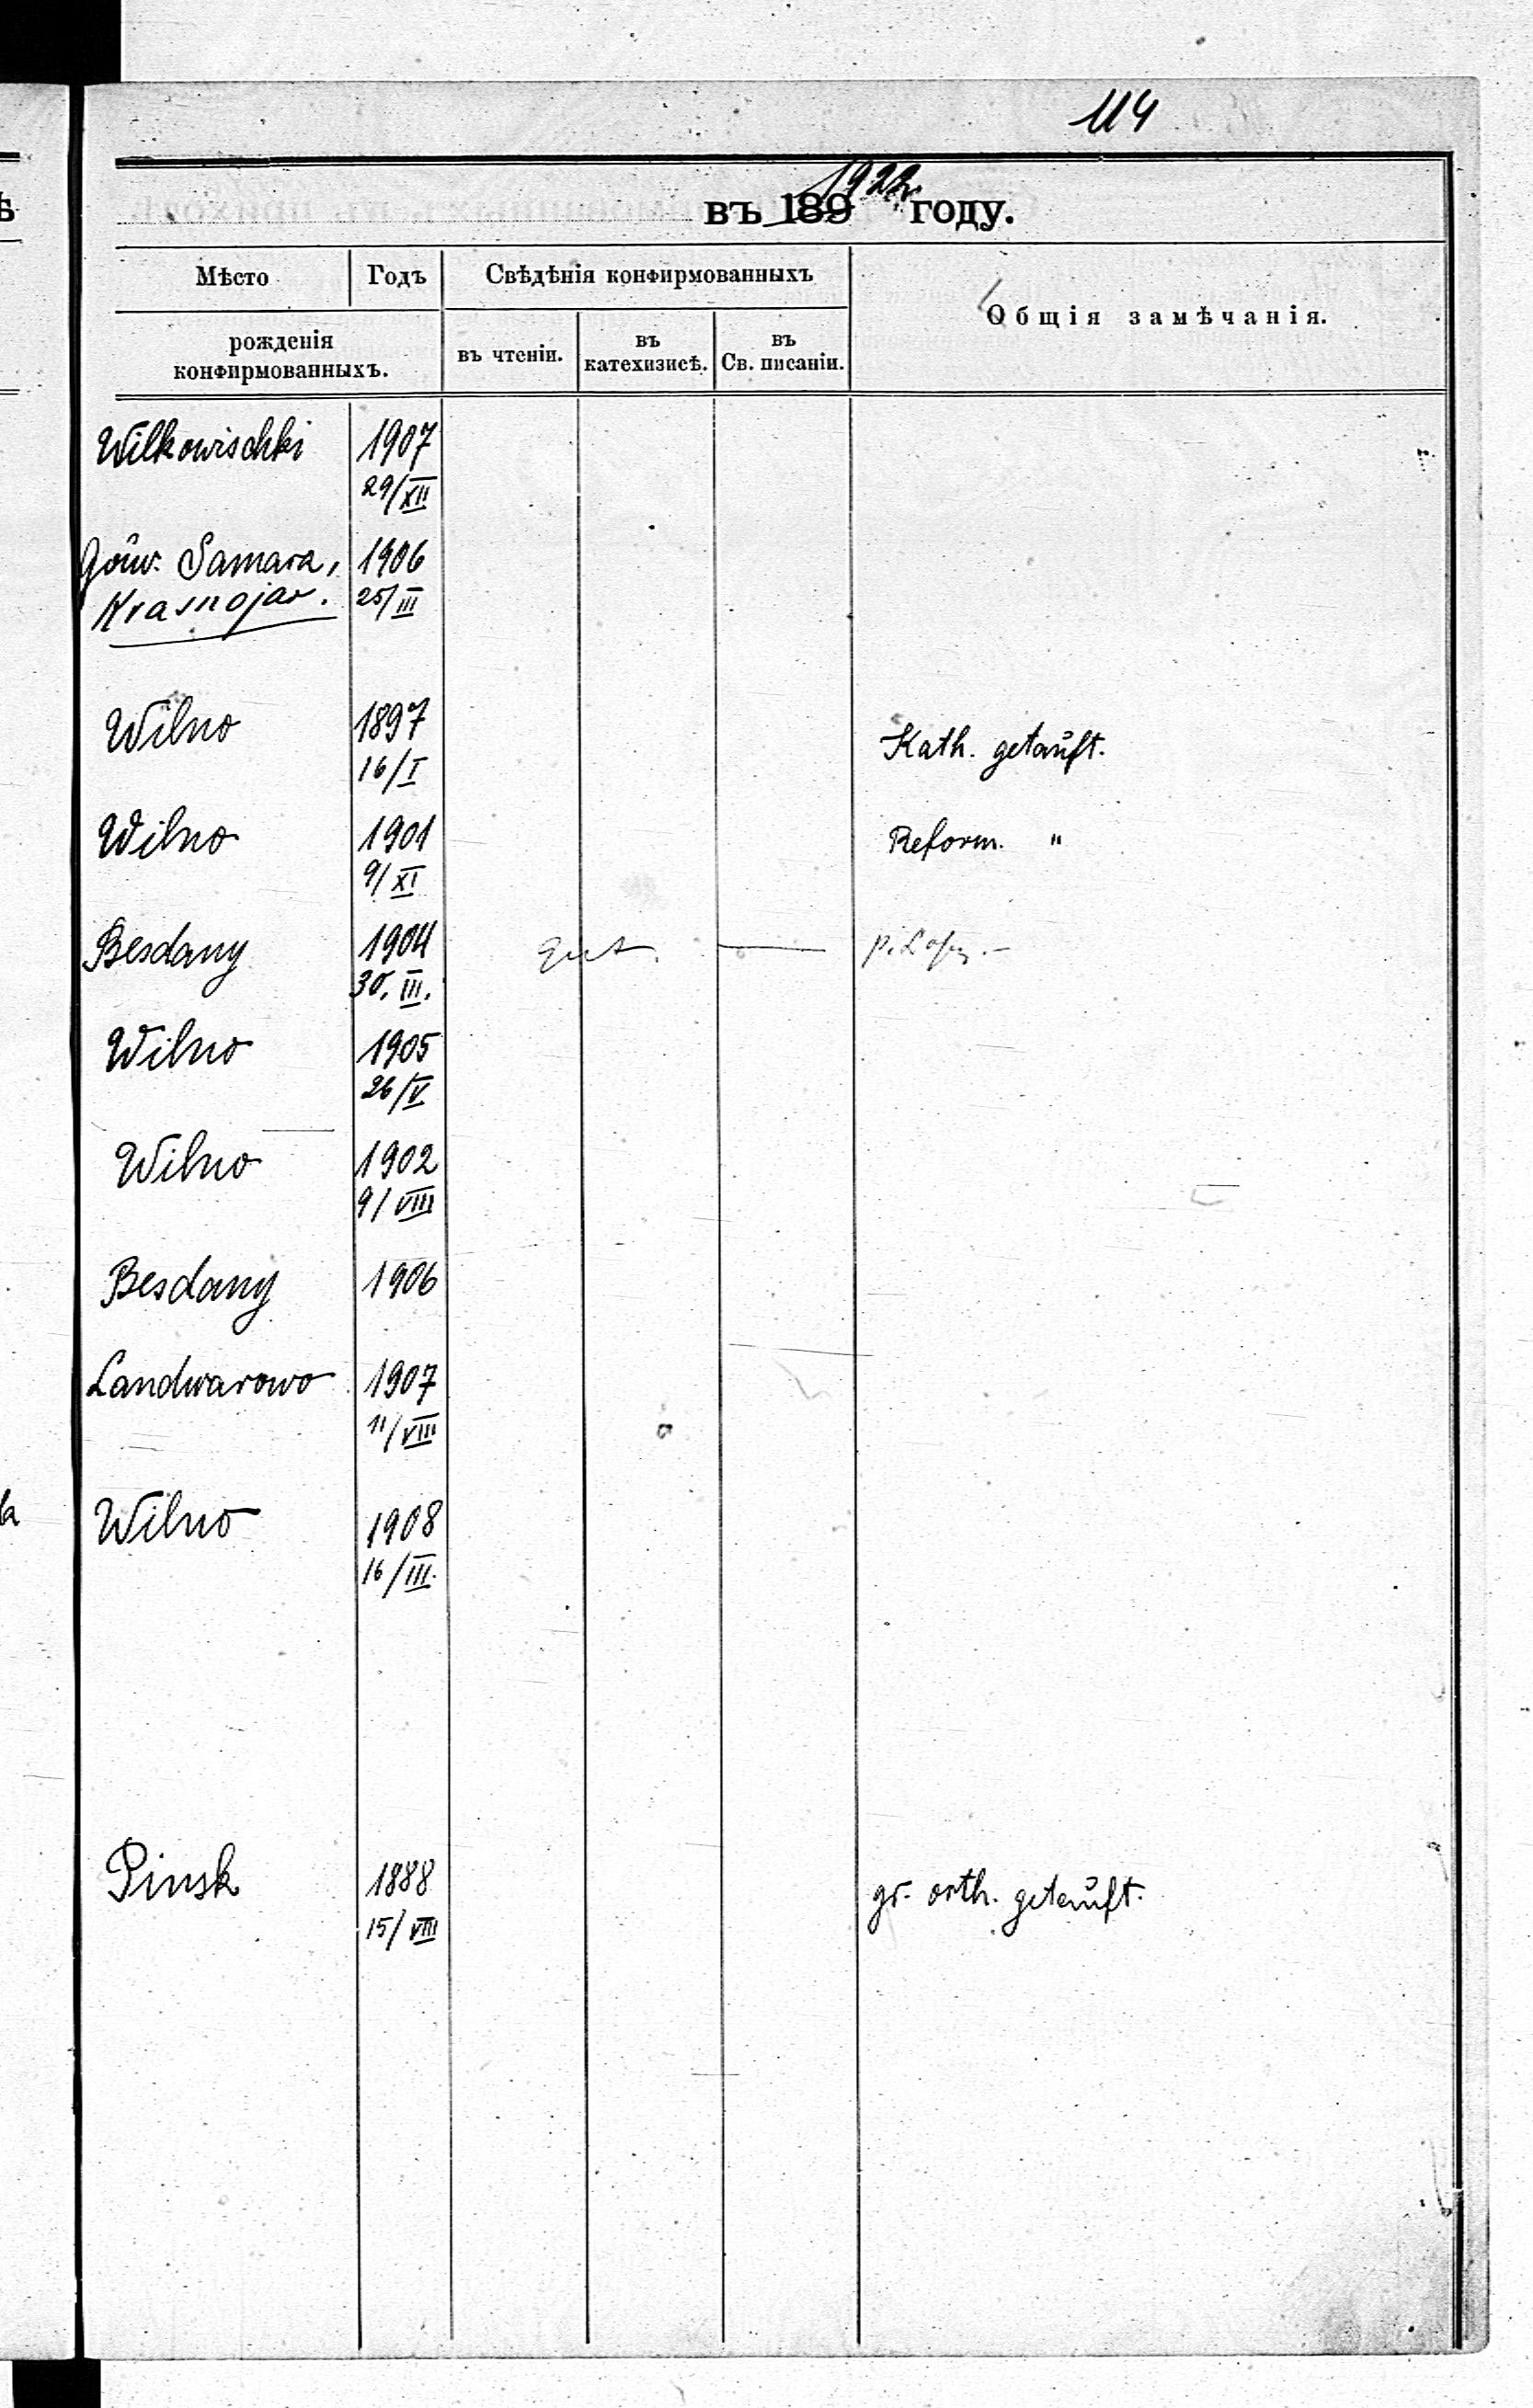 114
въ 189 1922. году.
Мѣсто Годъ Свѣдѣнія конфирмованныхъ Общія замѣчанія.
рожденія
конфирмованныхъ.
въ чтеніи. въ катехизисѣ. въ Св. писаніи.
Wilkowischki 1907
29/XII
Gouv. Samara, 1906
Krasnojar. 25/III
Wilno 1897 Kath. getauft.
16/I
Wilno 1901 Reform. "
9/XI
Besdany 1904 Gut.
30. III.
Wilno 1905
26/V
Wilno 1902
9/VIII
Besdany 1906
Landwarowo 1907
11/VIII
Wilno 1908
16/III.
Pinsk 1888 gr. orth. getauft.
15/VIII